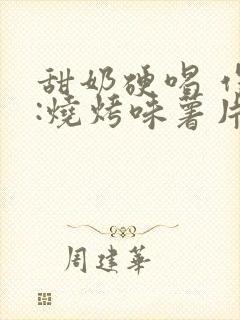 甜奶硬唱
:燒烤味薯片
周建華